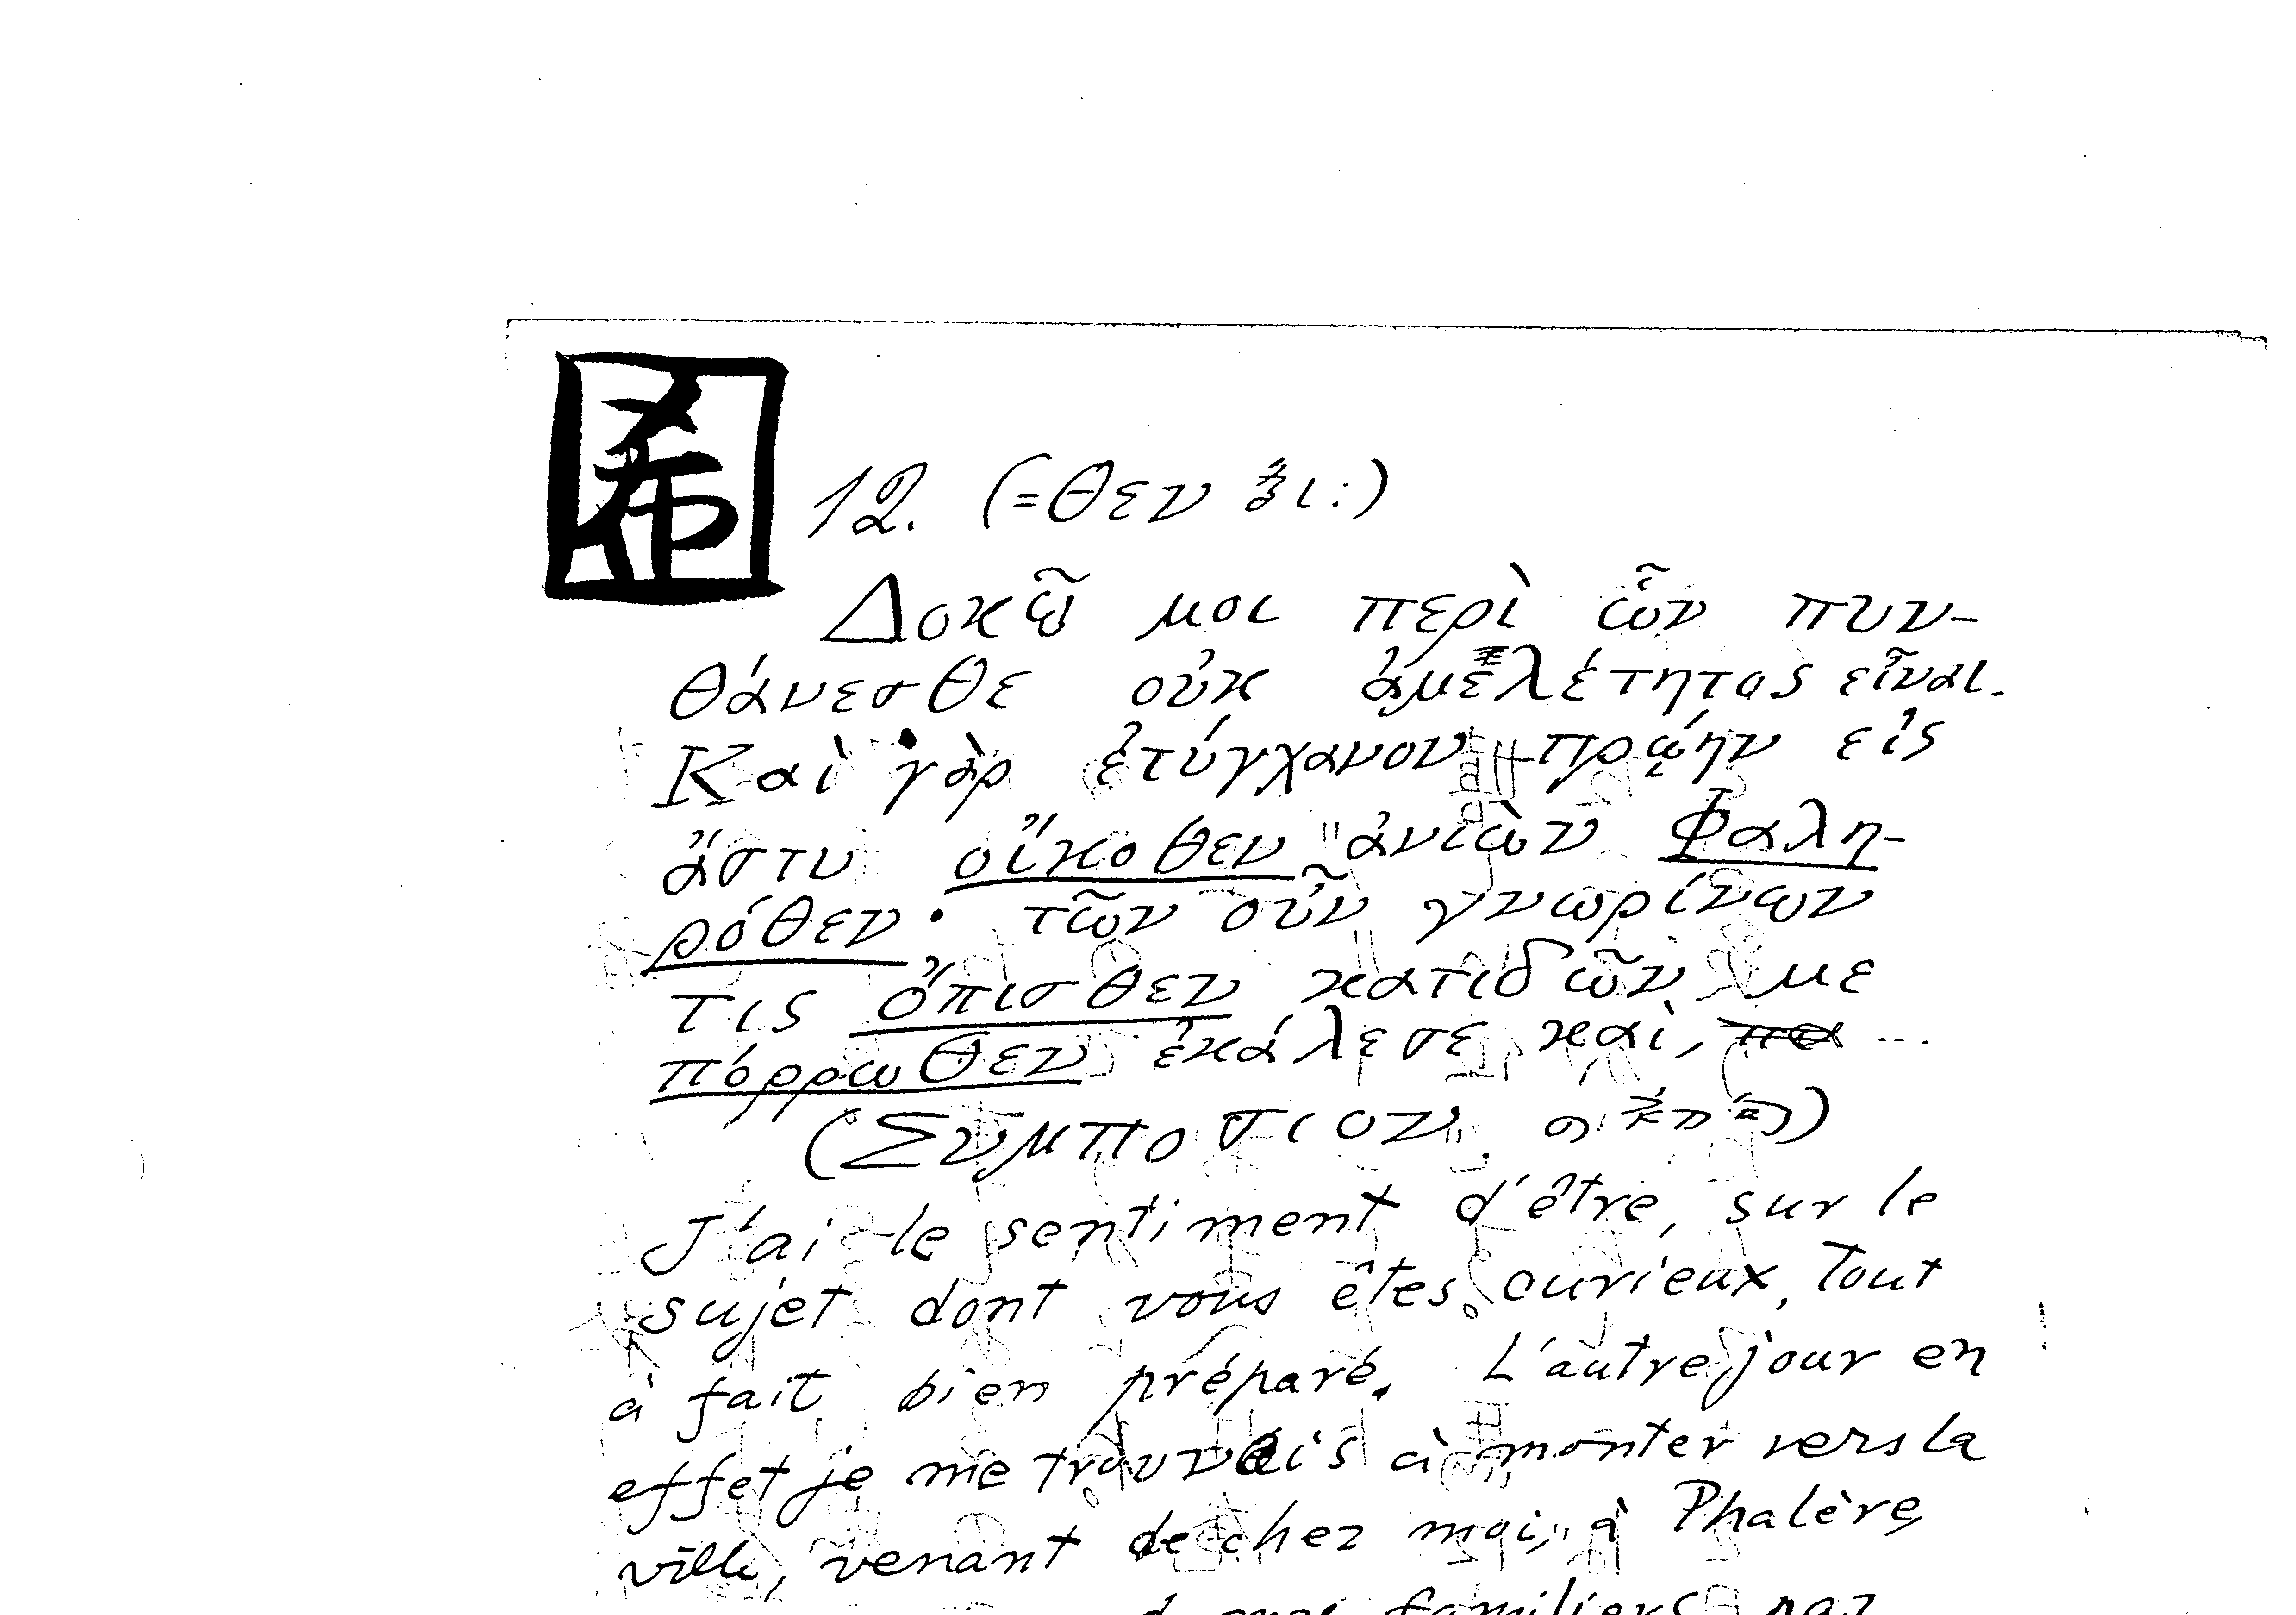 希
12. (=θεν
Δοκῶ μοι περὶ ὧν πυν-
θάνεσθε οὐκ ἀμελέτητος εἶναι.
Καὶ γὰρ ἐτύγχανον πρῴην εἰς
ἄστυ οἴκοθεν ἀνιὼν Φαλη-
ρόθεν· τῶν οὖν γνωρίνων
τις ὄπισθεν κατιδῶν με
πόρρωθεν ἐκάλεσε καὶ, πα ...
(Συμποσιον.
J'ai le sentiment d'être, sur le
sujet dont vous êtes curieux, Tout
à fait bien préparé. L'autre jour en
effet je me trouvais à monter vers la
ville, venant de chez moi, à Phalère,
familiers par